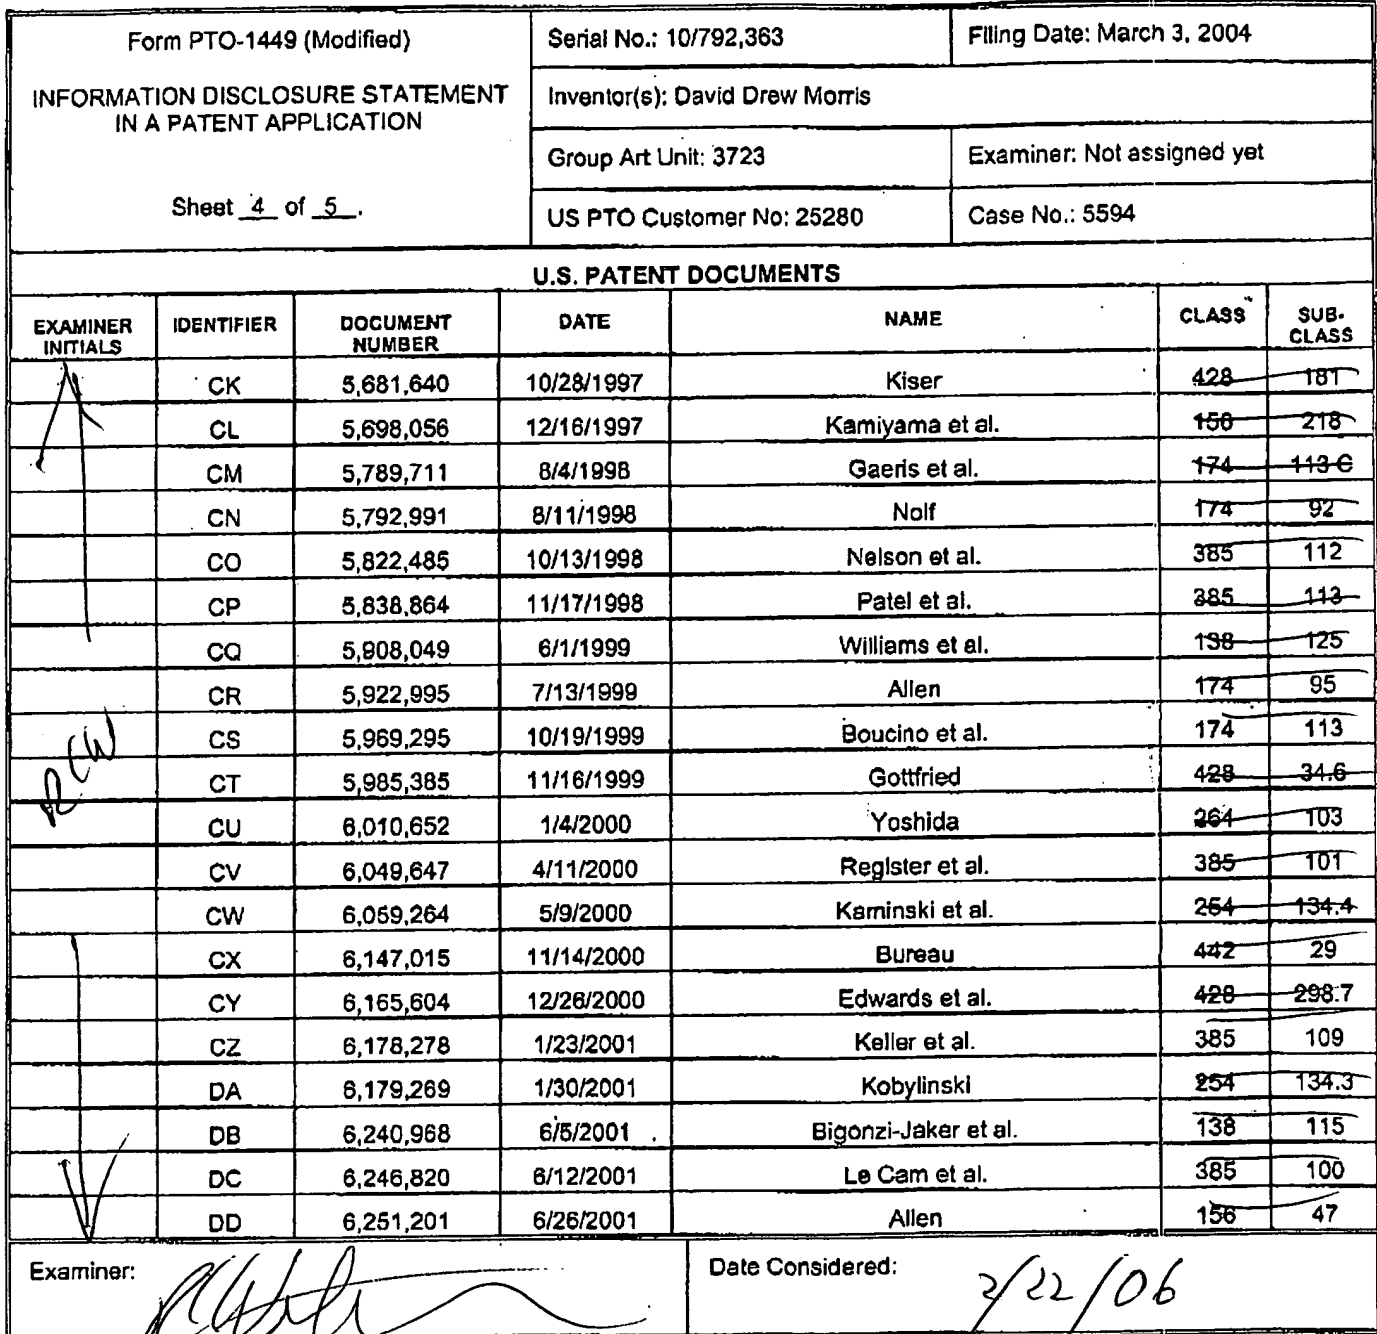 Form PTO-1449 (Modified)
INFORMATION DISCLOSURE STATEMENT
IN A PATENT APPLICATION
Sheet 4 of 5.
Serial No.: 10/792,363
Filing Date: March 3, 2004
Inventor(s): David Drew Morris
Group Art Unit: 3723
Examiner: Not assigned yet
US PTO Customer No: 25280
Case No.: 5594
U.S. PATENT DOCUMENTS
EXAMINER INITIALS IDENTIFIER DOCUMENT NUMBER DATE NAME CLASS SUB-CLASS
CK 5,681,640 10/28/1997 Kiser 428 181
CL 5,698,056 12/16/1997 Kamiyama et al. 156 218
CM 5,789,711 8/4/1998 Gaeris et al. 174 113 C
CN 5,792,991 8/11/1998 Nolf 174 92
CO 5,822,485 10/13/1998 Nelson et al. 385 112
CP 5,838,864 11/17/1998 Patel et al. 385 113
CQ 5,908,049 6/1/1999 Williams et al. 138 125
CR 5,922,995 7/13/1999 Allen 174 95
RCW CS 5,969,295 10/19/1999 Boucino et al. 174 113
CT 5,985,385 11/16/1999 Gottfried 428 34.6
CU 6,010,652 1/4/2000 Yoshida 264 103
CV 6,049,647 4/11/2000 Register et al. 385 101
CW 6,059,264 5/9/2000 Kaminski et al. 254 134.4
CX 6,147,015 11/14/2000 Bureau 442 29
CY 6,165,604 12/26/2000 Edwards et al. 428 298.7
CZ 6,178,278 1/23/2001 Keller et al. 385 109
DA 6,179,269 1/30/2001 Kobylinski 254 134.3
DB 6,240,968 6/5/2001 Bigonzi-Jaker et al. 138 115
DC 6,246,820 6/12/2001 Le Cam et al. 385 100
DD 6,251,201 6/26/2001 Allen 156 47
Examiner:
Date Considered: 2/22/06